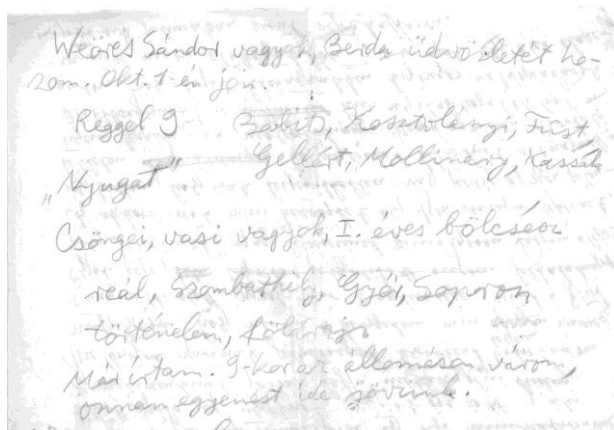 Weöres Sándor vagyok, Berda üdvözletét ho-
zom. Okt. 1-én jön.
Reggel 9 Babits, Kosztolányi, Füst,
Gellért, Mollináry, Kassák
„Nyugat”
Csöngei, vasi vagyok, I. éves bölcsész
reál, Szombathely, Győr, Sopron
történelem, földrajz
Már írtam. 9-kor az állomáson várom,
onnan egyenest ide jövünk.